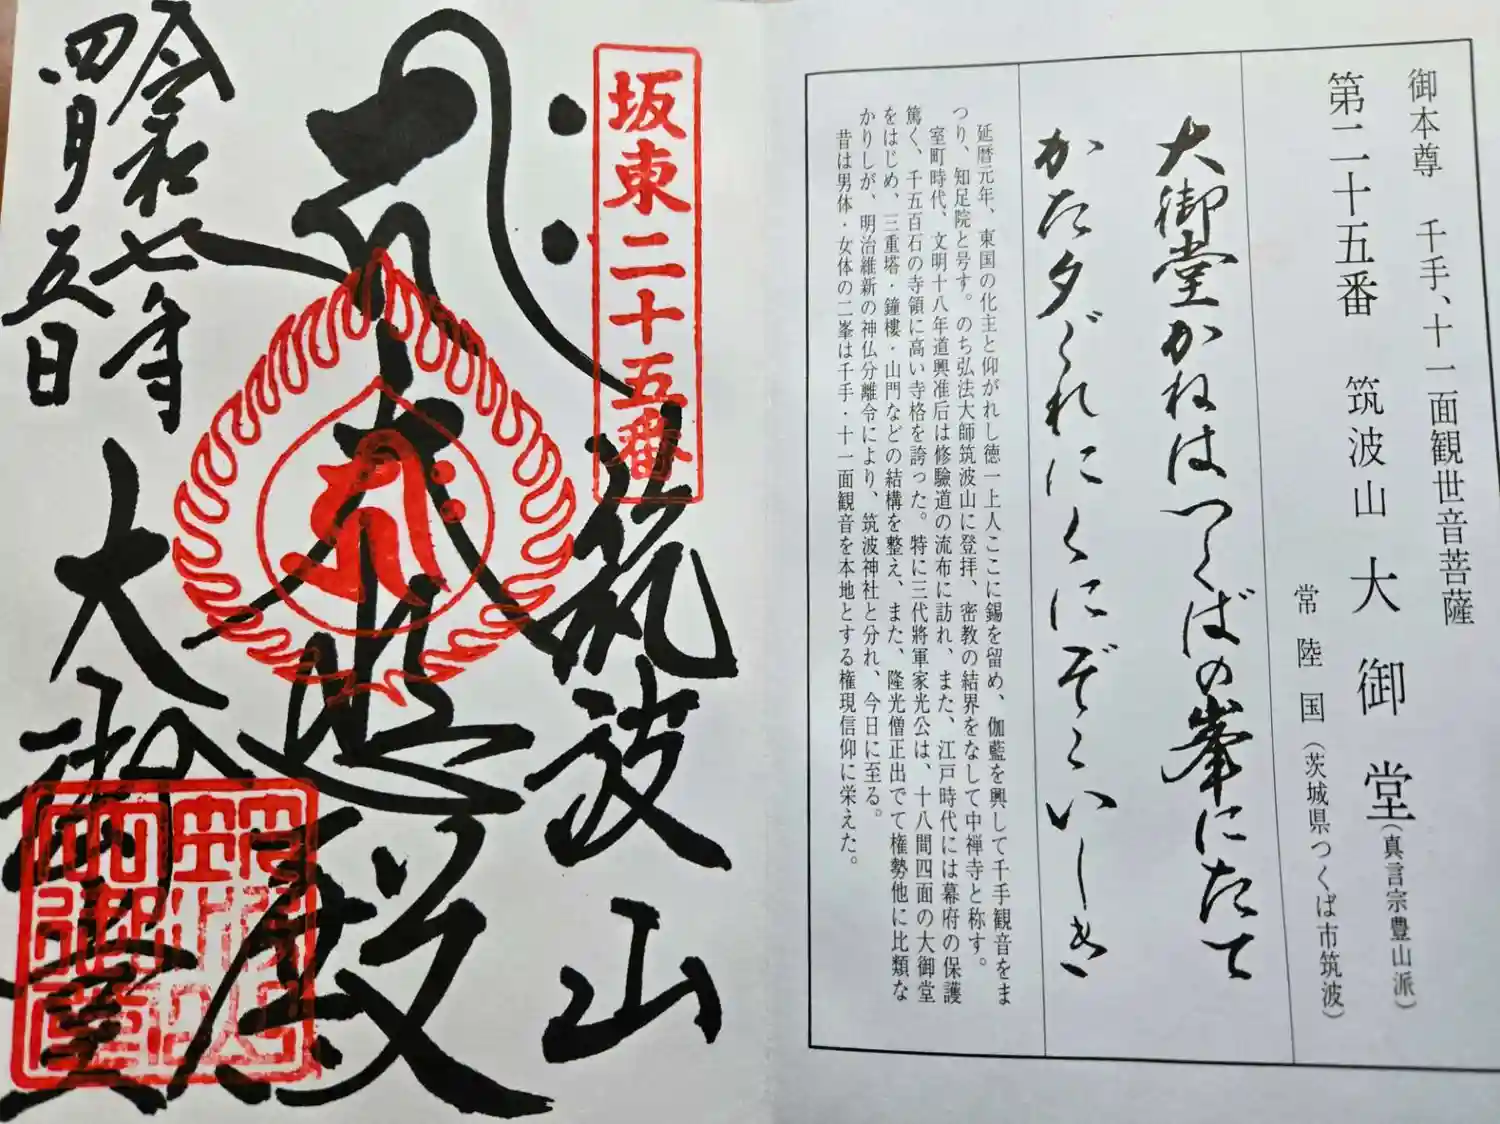 御本尊 千手、十一面観世音菩薩
第二十五番 筑波山 大御堂(真言宗豊山派)
常陸国(茨城県つくば市筑波)
大御堂かねはつくばの峯にたて
かた夕ぐれにくにぞこいしき
延暦元年、東国の化主と仰がれし徳一上人ここに錫を留め、伽藍を興して千手観音をま
つり、知足院と号す。のち弘法大師筑波山に登拝、密教の結界をなして中禅寺と称す。
室町時代、文明十八年道興准后は修驗道の流布に訪れ、また、江戸時代には幕府の保護
篤く、千五百石の寺領に高い寺格を誇った。特に三代將軍家光公は、十八間四面の大御堂
をはじめ、三重塔・鐘樓・山門などの結構を整え、また、隆光僧正出でて権勢他に比類な
かりしが、明治維新の神仏分離令により、筑波神社と分れ、今日に至る。
昔は男体・女体の二峯は千手・十一面観音を本地とする権現信仰に栄えた。
坂東二十五番
筑波山
大悲殿
大御堂
令和七年
四月五日
筑波山
大御堂